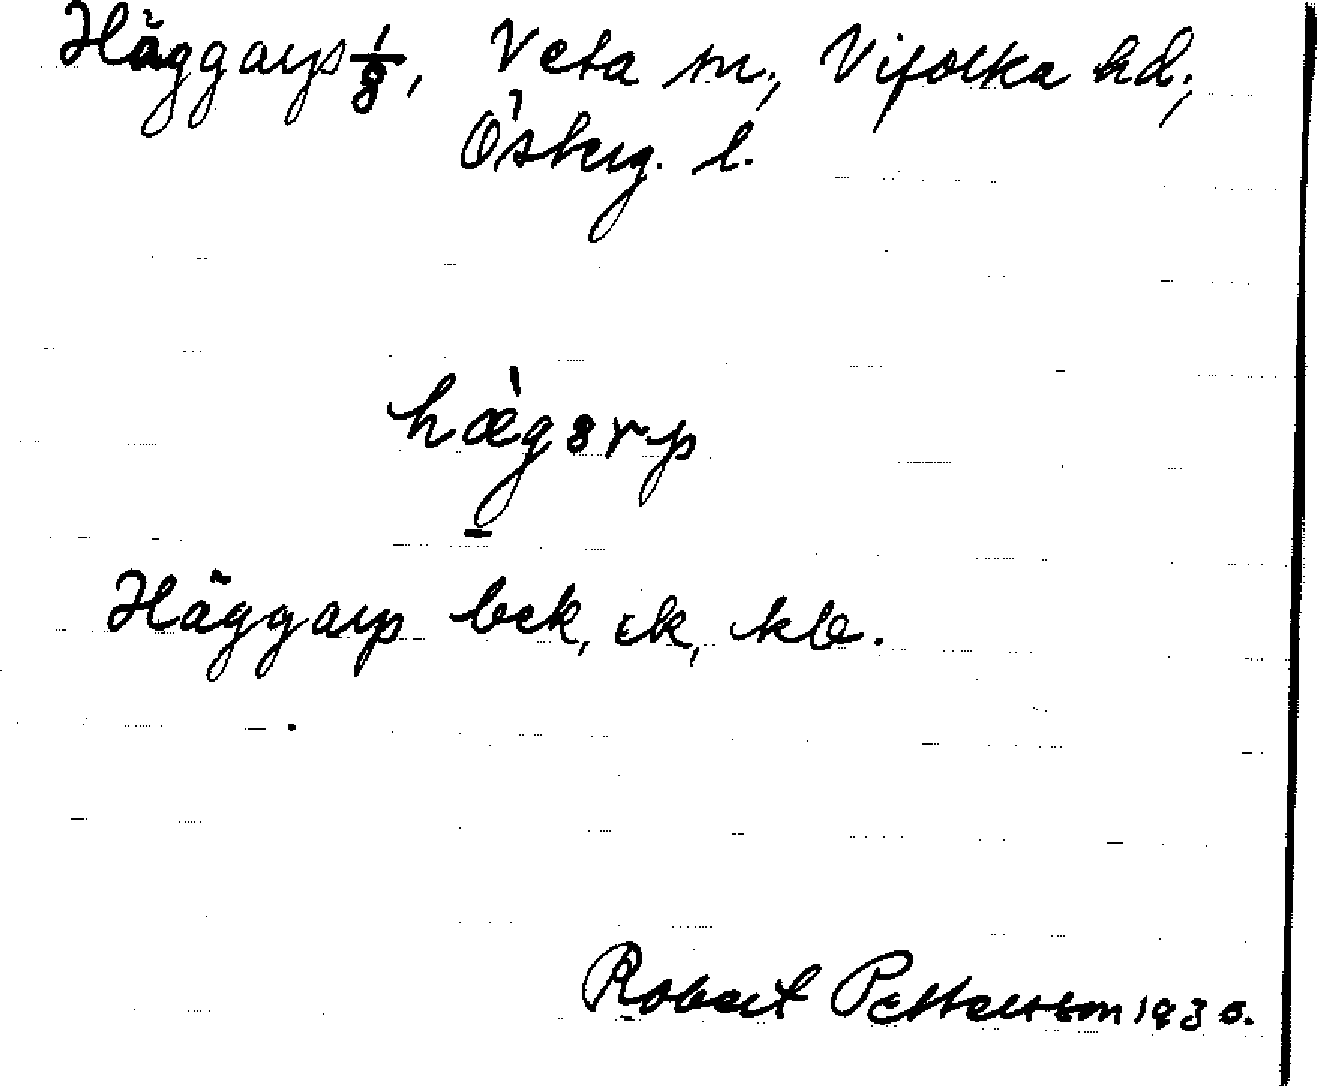 Häggarp 1/8, Veta sn., Vifolka hd.,
Östergt. l.
hæ̀garp
Häggarp bek, ek, kb.
Robert Pettersson 1930.